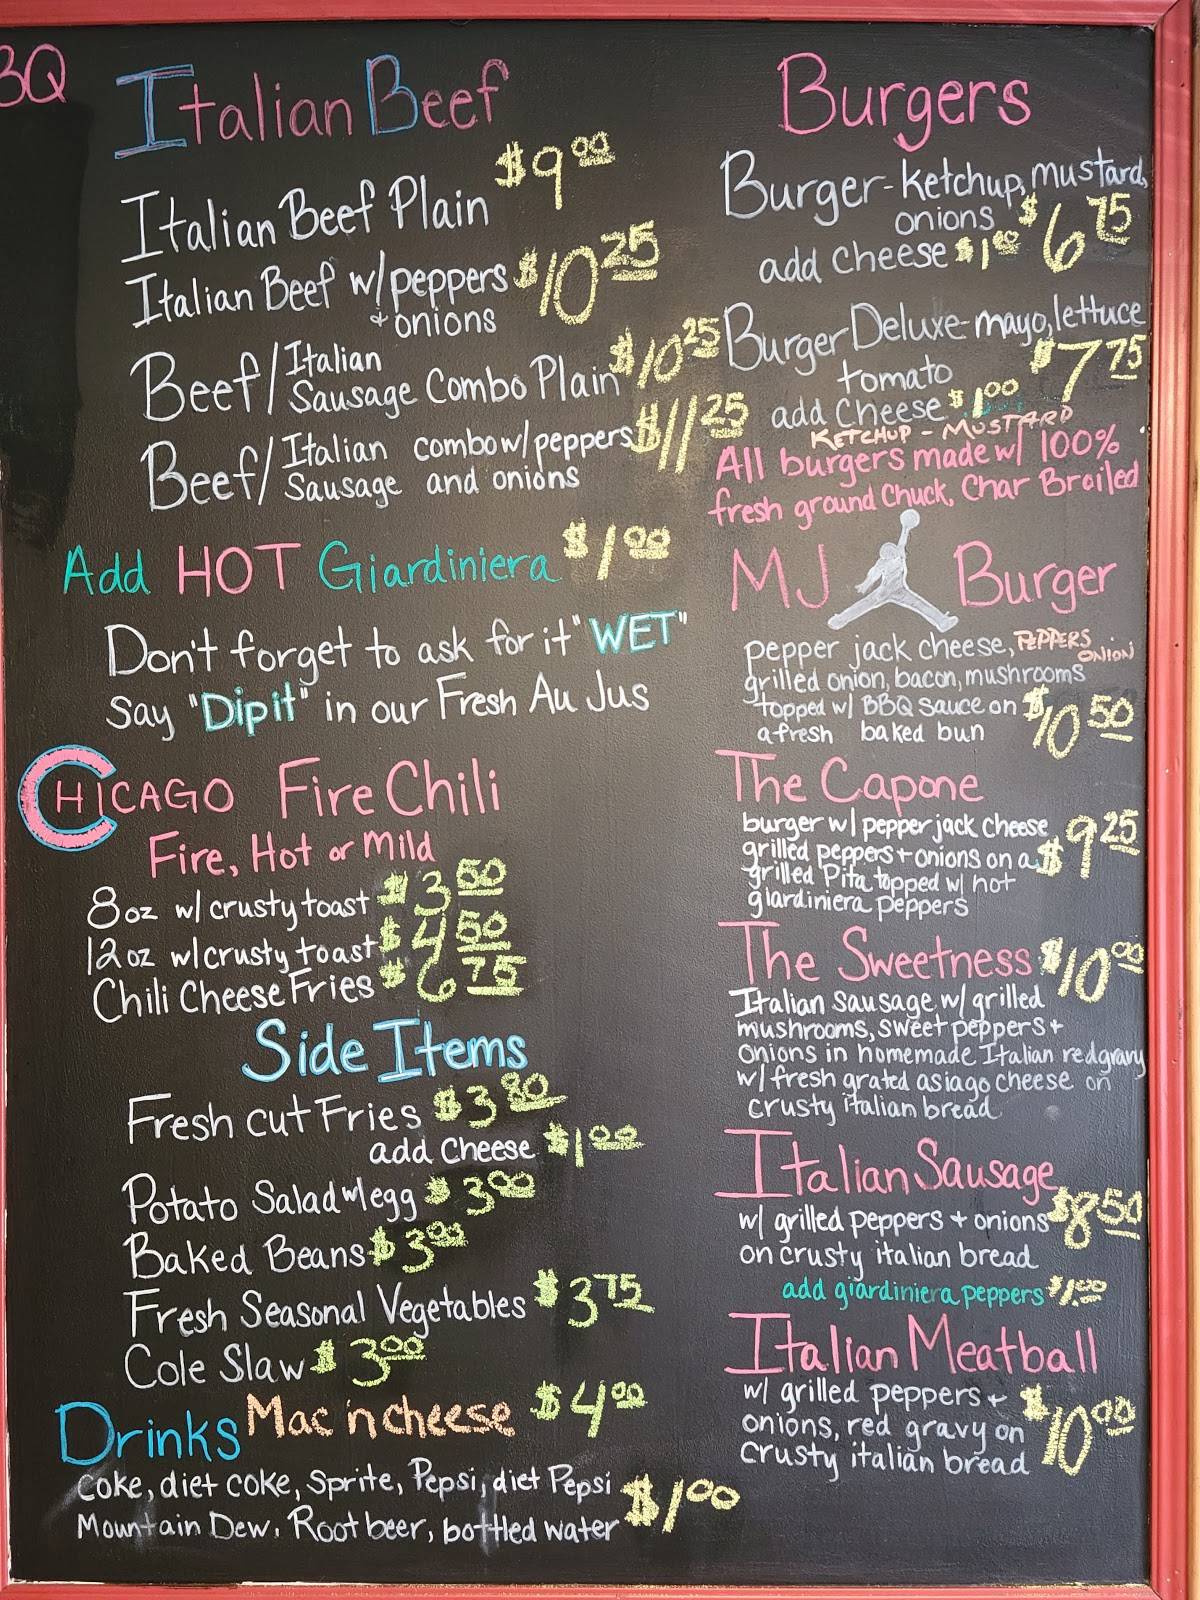 BQ
Italian Beef
Italian Beef Plain $9.00
Italian Beef w/peppers $10.25
+ onions
Beef/Italian
Sausage Combo Plain $10.25
Beef/Italian combo w/peppers $11.25
Sausage and onions
Add HOT Giardiniera $1.00
Don't forget to ask for it "WET"
Say "Dip it" in our Fresh Au Jus
CHICAGO Fire Chili
Fire, Hot or Mild
8oz w/ crusty toast $3.50
12oz w/crusty toast $4.50
Chili Cheese Fries $6.75
Side Items
Fresh cut Fries $3.80
add Cheese $1.00
Potato Salad w/egg $3.00
Baked Beans $3.00
Fresh Seasonal Vegetables $3.75
Cole Slaw $3.00
Mac 'n cheese $4.00
Drinks
Coke, diet coke, Sprite, Pepsi, diet Pepsi
Mountain Dew, Root beer, bottled water $1.00
Burgers
Burger - ketchup, mustard,
onions $6.75
add Cheese $1.00
Burger Deluxe - mayo, lettuce
tomato $7.75
add Cheese $1.00
KETCHUP - MUSTARD
All burgers made w/ 100%
fresh ground Chuck, Char Broiled
MJ Burger
pepper jack cheese, PEPPERS
ONION
grilled onion, bacon, mushrooms
topped w/ BBQ sauce on $10.50
a fresh baked bun
The Capone
burger w/ pepper jack cheese $9.25
grilled peppers + onions on a
grilled Pita topped w/ hot
giardiniera peppers
The Sweetness $10.00
Italian Sausage w/ grilled
mushrooms, sweet peppers +
onions in homemade Italian red gravy
w/ fresh grated asiago cheese on
crusty italian bread
Italian Sausage
w/ grilled peppers + onions $8.50
on crusty italian bread
add giardiniera peppers $1.00
Italian Meatball
w/ grilled peppers + $10.00
onions, red gravy on
crusty italian bread